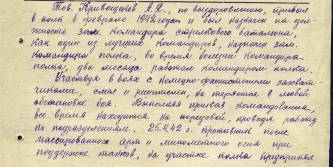 Тов. Кривошеков А.Я., по выздоровлению, прибыл
в полк в феврале 1942 года и был назначен на дол-
жность зам. командира стрелкового батальона,
как один из лучших командиров, назначен зам.
командира полка, во время болезни командира
полка, два месяца работал командиром полка.
Участвуя в боях с немецко-фашистскими захват-
чиками, смел и решителен, не теряется в любой
обстановке боя. Выполняя приказ командования,
все время находится на передовой, проводя работу
по подразделениям. 25.4.42 г. противник после
массированного арт и минометного огня при
поддержке танков, на участке полка предпринял